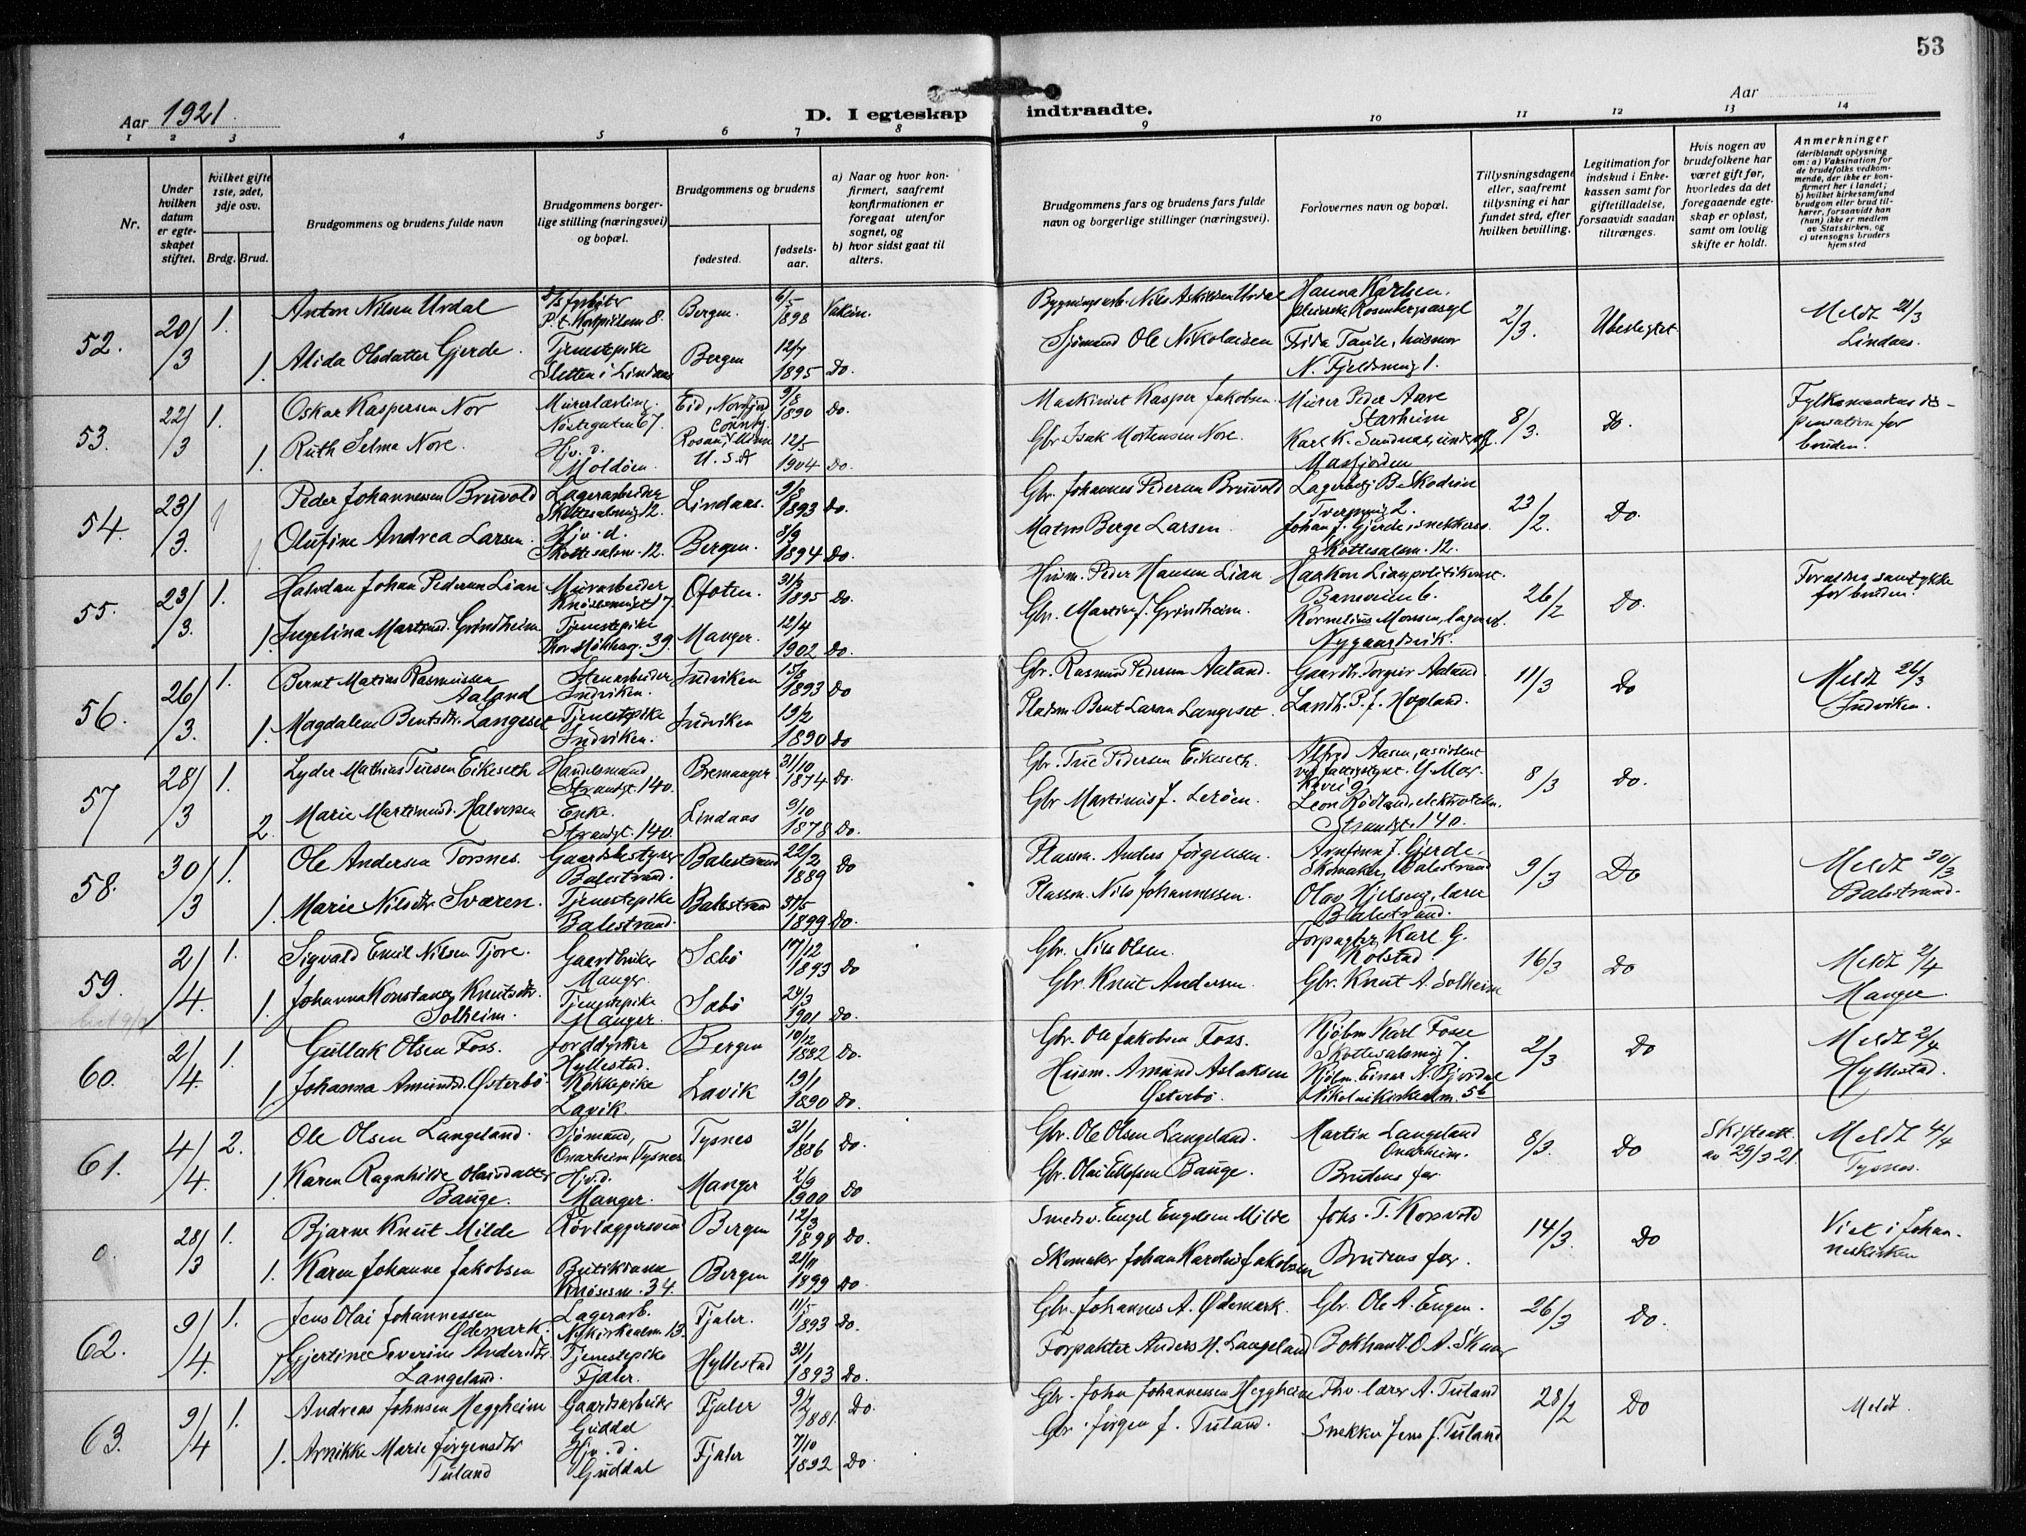 53
Aar 1921.
Aar
D. I egteskap indtraadte.
1 2 3 4 5 6 7 8 9 10 11 12 13 14
Nr.
Under hvilken datum er egteskapet stiftet.
hvilket gifte 1ste, 2det, 3dje osv.
Brdg. Brud.
Brudgommens og brudens fulde navn
Brudgommens borgerlige stilling (næringsvei) og bopæl.
Brudgommens og brudens
fødested.
fødselsaar.
a) Naar og hvor konfirmert, saafremt konfirmationen er foregaat utenfor sognet, og
b) hvor sidst gaat til alters.
Brudgommens fars og brudens fars fulde navn og borgerlige stillinger (næringsvei).
Forlovernes navn og bopæl.
Tillysningsdagene eller, saafremt tillysning ei har fundet sted, efter hvilken bevilling.
Legitimation for indskud i Enkekassen samt for giftetilladelse, forsaavidt saadan tiltrænges.
Hvis nogen av brudefolkene har været gift før, hvorledes da det foregaaende egteskap er opløst, samt om lovlig skifte er holdt.
Anmerkninger
(deriblandt oplysning om: a) Vaksination for de brudefolks vedkommende, der ikke er konfirmert her i landet; b) hvilket kirkesamfund brudgom eller brud tilhører, forsaavidt han (hun) ikke er medlem av Statskirken, og c) utensogns bruders hjemsted
52. 20/3 1. Anton Nilsen Urdal Bergen. 6/5 1898 Vaksin. Nils Askildsen Urdal Hanna Karlsen, 2/3. Ubeslegtet Meldt 21/3 Lindaas.
1. Alida Olsdatter Gjerde. Tjenestepike Sletten i Lindaas Bergen 12/7 1895 Do. Sjømand Ole Nikolaisen husmor N. Fjeldsmug 1.
53. 22/3 1. Oskar Kaspersen Nor Murerlærling. Nøstegaten 67. Eid, Nordfjord 9/8 1890 Do. Maskinist Kasper Jakobsen. Murer Peder Aare Starheim 8/3. Do. Fylkesmandens dispensation for bruden.
1. Ruth Selma Nore. Hj.v.d. Moldøen. U.S.A 12/5 1904 Do. Gbr. Isak Mortensen Nore. Karl K. Masfjorden
54. 23/3. Peder Johannessen Bruvold Lagerarbeider Skottesalmg 12. Lindaas. 1893 Do. Gbr. Johannes Pedersen Bruvold 23/2. Do.
Olufine Andrea Larsen. Hjv.d. Skottesalm. 12. Bergen. 8/9 1894 Do. Matros Berge Larsen. Johan J. Gjerde, snekkers. Skottesalm. 12.
55. 23/3. 1. Halvdan Johan Pedersen Lian Murarbeider Ofoten. 31/3 1895 Do. Husm. Peder Hansen Lian Haakon Lian, politikonst. 26/2 Do. Forældresamtykke for bruden.
1. Ingelina Martinsd. Grindheim Tjenestepike 39. Manger. 12/4 1902 Do. Gbr. Martin J. Grindheim. Kornelius Monsen, lagerarb. Nygaardsvik.
56. 26/3. 1. Bernt Matias Rasmussen Aaland Stenarbeider Indviken. Indviken 15/3 1893 Do Gbr. Rasmus Pedersen Aaland. Gaardbr. Torgeir Aaland. 11/3 Do Meldt 26/3 Indviken.
1. Magdalene Bentsdtr. Langeset Tjenestepike Indviken. Indviken 13/2 1890 Do Pladsm. Bent Larsen Langeset. Landh. P. J. Hopland.
57 28/3 1. Lyder Mathias Tuesen Eikeseth Handelsmand Strandgt. 140. Bremanger 31/10 1874 Do. Gbr. Tue Pedersen Eikeseth. Alfred Aasen, assistent 8/3 Do.
2. Marie Martinusd. Halvorsen Enke. Strandgt. 140. Lindaas 9/10 1878 Do. Gbr Martinus J. Lerøen. Leon Rødland, elektrotekn. Strandgt. 140.
58. 30/3 1. Ole Andersen Torsnes. Gaardsbestyrer Balestrand. Balestrand 22/2 1889 Do Plassm. Anders Jørgensen. Arnfinn J. Gjerde, Skomaker, Balestrand 9/3 Do Meldt 30/3 Balestrand.
1. Marie Nilsdtr. Sværen. Tjenestepike Balestrand. Balestrand 1899 Do. Plassm. Nils Johannessen. Olav Hjelseng, lærer Balestrand.
59. 2/4. 1. Sigvald Emil Nilsen Tjore. Gaardbruker Manger. Sæbø 17/12 1893 Do Gbr. Nils Olsen. Forpagter, Karl G. Kolstad 16/3 Do Meldt 2/4 Manger.
1. Johanna Konstance Knutsdtr. Solheim. Tjenestepike Manger. Sæbø 24/3 1901 Do. Gbr. Knut Andersen. Gbr. Knut A. Solheim
60. 2/4. 1. Gullak Olsen Foss. Jorddyrker Hyllestad. Bergen 10/12 1882 Do. Gbr. Ole Jakobsen Foss. Kjøbm Karl Fosse Skottesalmg 7. 2/3 Do Meldt 2/4 Hyllestad.
1. Johanna Amundsd. Østerbø. Kokkepike Lavik. Lavik 13/1 1890 Do. Husm. Amund Aslaksen Østerbø. Kjøbm. Einar N. Bjordal Nikolaikirkealm. 5b
61. 4/4. 2. Ole Olsen Langeland. Sjømand, Onarheim, Tysnes Tysnes 31/1 1886 Do. Gbr. Ole Olsen Langeland. Martin Langeland Onarheim. 8/3. Do Skifteatt. av 29/3 21. Meldt 4/4 Tysnes.
1. Karen Ragnhilde Olaisdatter Bauge. Hj.v.d. Manger. Manger 2/9 1900 Do Gbr. Olai Ellefsen Bauge. Brudens far
0. 28/3 1. Bjarne Knut Milde Rørlæggersvend Bergen 12/3 1898 Do. Smedsv. Engel Engelsen Milde Johs. T. Korsvold 14/3. Do Viet i Johanneskirken
1. Karen Johanne Jakobsen Butikdame 34. Bergen 21/11 1899 Do Skomaker Johan Karolius Jakobsen Brudens far.
62. 9/4. 1. Jens Olai Johannessen Ødemark. Lagerarb. N.kirkealm 13. Fjaler. 11/5 1893 Do. Gbr. Johannes A. Ødemark. Gbr. Ole A. Engen. 26/3 Do.
1 Gjertine Severine Andersdtr. Langeland. Tjenestepike Fjaler. Hyllestad 31/1 1893 Do. Forpakter Anders M. Langeland Bokhandl. O. A. Skaar
63. 9/4 1. Andreas Johnsen Heggheim Gaardsarbeider Guddal Fjaler 9/2 1881. Do. Gbr. John Johannessen Heggheim Fhv. lærer A. Tuland 28/2 Do Meldt.
1. Annikke Marie Jørgensdtr Tuland Hjv.d. Guddal Fjaler 7/10 1892 Do. Gbr. Jørgen J. Tuland. Snekker Jens J. Tuland